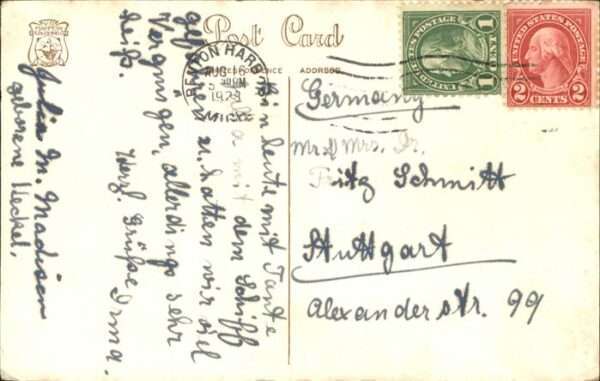 Post Card
CORRESPONDENCE ADDRESS
BENTON HARBOR
AUG
5
1929
MICH.
UNITED STATES POSTAGE
1 CENT 1
UNITED STATES POSTAGE
2 CENTS 2
Germany
Mr. & Mrs. Dr.
Fritz Schmitt
Stuttgart
Alexanderstr. 99
Bin heute mit Tante
mit dem Schiff
gefahren u. hatten wir viel
Vergnügen, allerdings sehr
heiß.
Herzl. Grüße Irma.
Julia M. Madison
geborene Heckel.